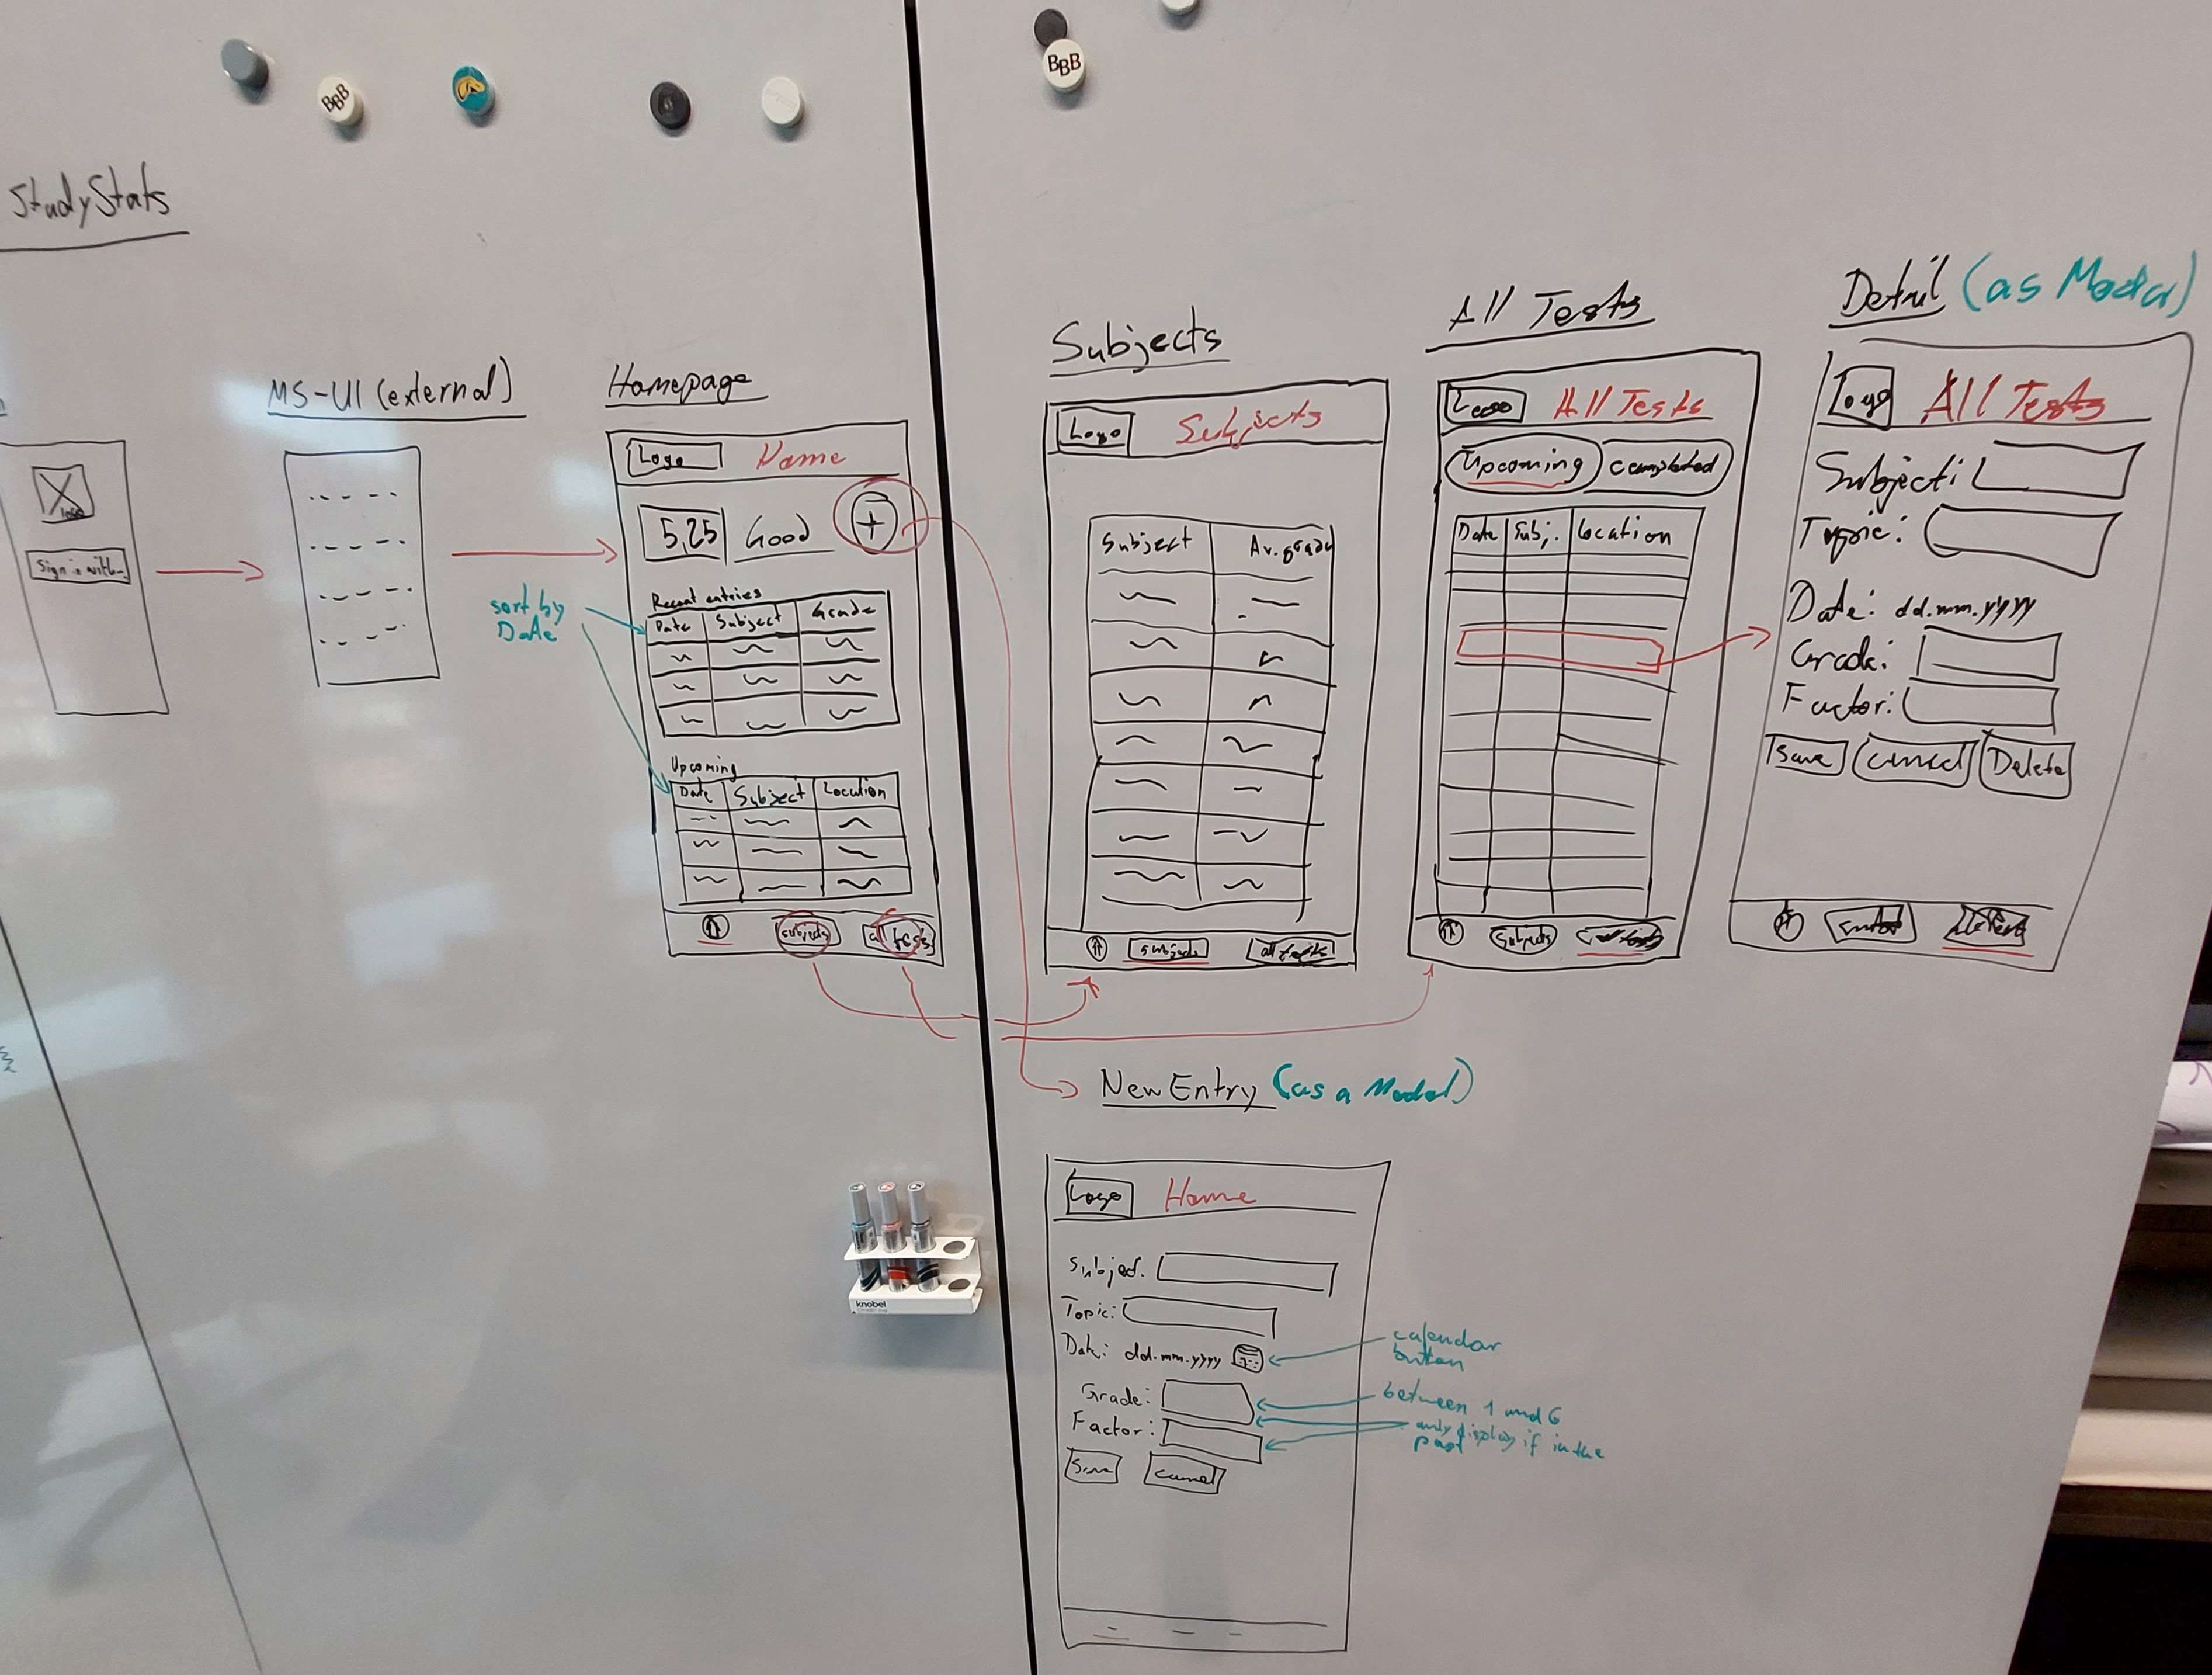 StudyStats
BBB
BBB
logo
Sign in with...
MS-UI (external)
Homepage
Logo Name
5,25 Good +
sort by
Date
Recent entries
Date Subject Grade
Upcoming
Date Subject Location
subjects all tests
Subjects
Logo Subjects
Subject Av. grade
subjects all tests
All Tests
Logo All Tests
Upcoming completed
Date Subj. Location
Subjects all tests
Detail (as Modal)
Logo All Tests
Subject:
Topic:
Date: dd.mm.yyyy
Grade:
Factor:
Save Cancel Delete
New Entry (as a Modal)
Logo Home
Subject:
Topic:
Date: dd.mm.yyyy
calendar
button
Grade:
between 1 and 6
Factor:
only display if in the
past
Save Cancel
knobel